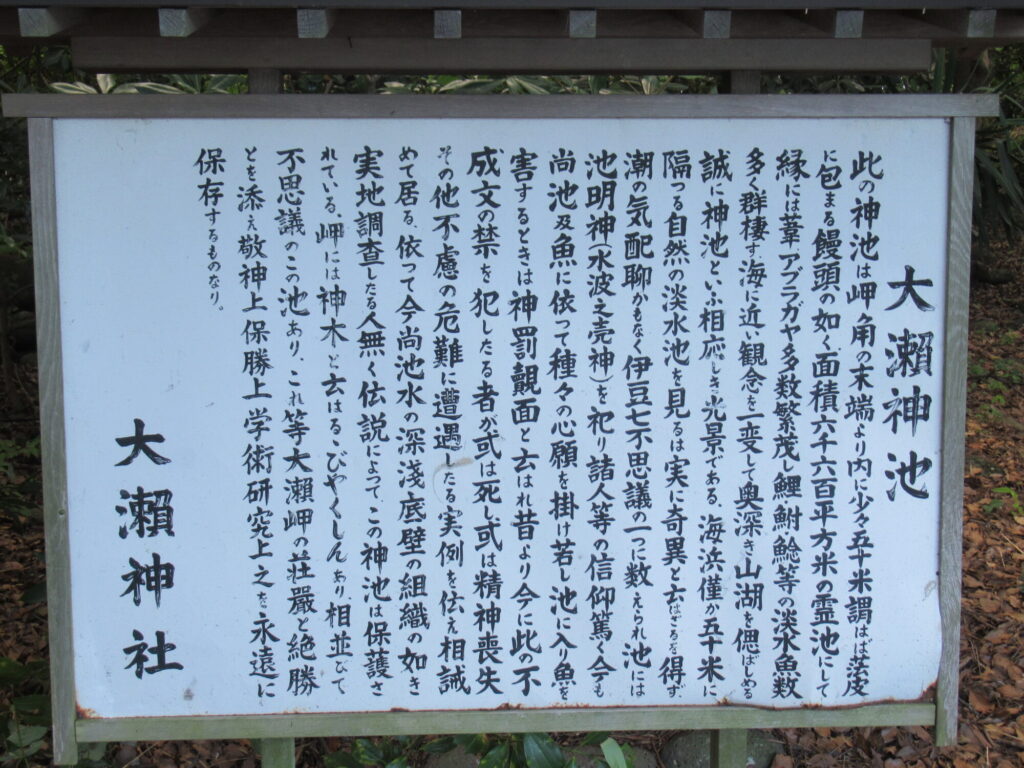 大瀬神池
此の神池は岬角の末端より内に少々五十米謂はば落皮
に包まる饅頭の如く面積六千六百平方米の霊池にして
縁には葦アブラガヤ多数繁茂し鯉・鮒鯰等の淡水魚数
多く群棲す、海に近い観念を一変して奥深き山湖を偲ばしめる
誠に神池といふ相応しき光景である、海浜僅か五十米に
隔つる自然の淡水池を見るは実に奇異と云はざるを得ず
潮の気配聊かもなく伊豆七不思議の一つに数えられ池には
池明神(水波之売神)を祀り諸人等の信仰篤く今も
尚池及魚に依って種々の心願を掛け若し池に入り魚を
害するときは神罰覿面と云はれ昔より今に此の不
成文の禁を犯したる者が或は死し或は精神喪失
その他不慮の危難に遭遇したる実例を伝え相誡
めて居る、依って今尚池水の深淺底壁の組織の如き
実地調査したる人無く伝説によって、この神池は保護さ
れている、岬には神木と云はるこびやくしんあり相並びて
不思議のこの池あり、これ等大瀬岬の荘嚴と絶勝
とを添え敬神上保勝上学術研究上之を永遠に
保存するものなり。
大瀬神社